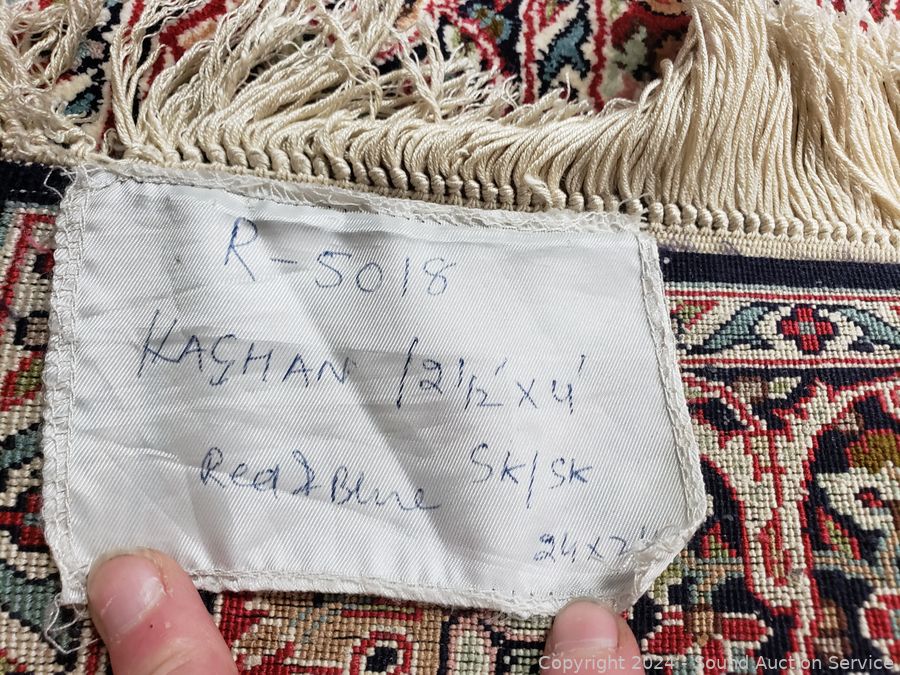 R-5018
KASHAN / 2½' x 4'
Red & Blue Sk/Sk
24 x
Copyright 2024 - Sound Auction Service